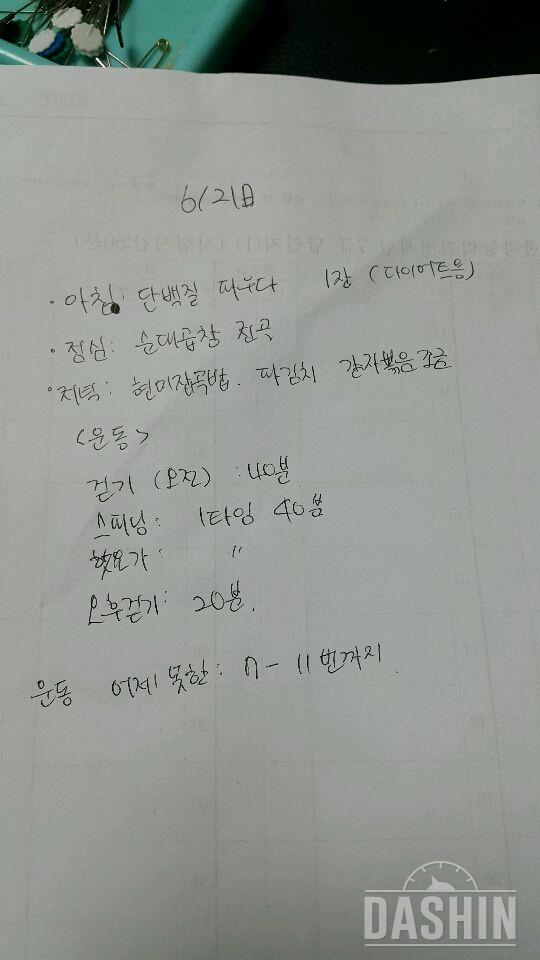 6/2日
· 아침: 단백질 파우다 1장 (다이어트용)
· 점심: 순대곱창 전골
· 저녁: 현미잡곡밥. 파김치 감자볶음 조금
<운동>
걷기 (오전) : 40분
스피닝: 1타임 40분
핫요가: "
오후걷기: 20분.
운동 어제 못한: 7 - 11번까지.
DASHIN